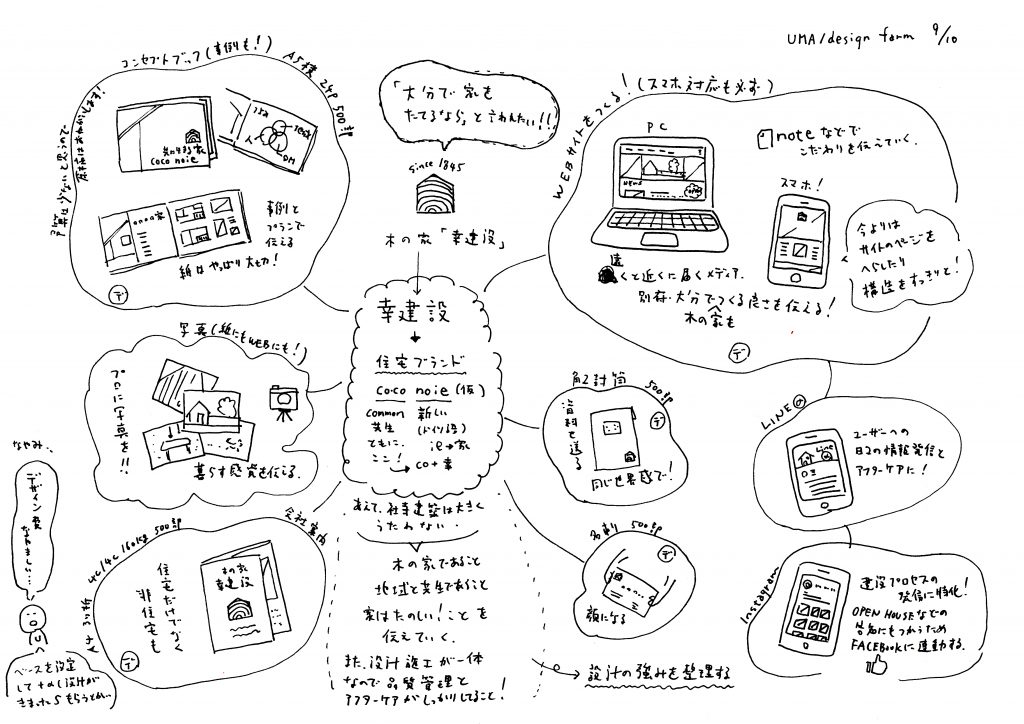 UMA/design farm 9/10
コンセプトブック(事例も!) A5横 24P 500部
戸数は少ないと思うので
共に生きる家
coco noie
人
DM
事例と
プランで
伝える
紙はやっぱり大切!
デ
「大分で家を
たてるなら」と言われたい!!
since 1845
木の家「幸建設」
WEBサイトをつくる!(スマホ対応も必ず)
PC
NEWS
noteなどで
こだわりを伝えていく。
スマホ!
今よりは
サイトのページを
へらしたり
構造をすっきりと!
遠くと近くに届くメディア。
別府・大分でつくる良さを伝える!
木の家を
デ
幸建設
住宅ブランド
coco noie(仮)
common 新しい
共生 (ドイツ語)
ともに、 ie→家
ここ! →co+素
写真(紙にもWEBにも!)
プロに写真を!!
暮らす感覚を伝える。
角2封筒 500部
資料を送る
デ
同じ世界感で!
LINE@
LINE
ユーザーへの
日々の情報発信と
アフターケアに!
あえて、社寺建築は大きく
うたわない。
木の家であること
地域と共生であること
家はたのしい!ことを
伝えていく。
また、設計施工が一体
なので品質管理と
アフターケアがしっかりしてること!
→設計の強みを整理する
名刺 500部
デ
顔になる
会社案内
A4 3つ折 4c/4c 160kg 500部
住宅だけでなく
非住宅も
木の家
幸建設
デ
なやみ、
デザイン費
なやましい…
ベースを設定
して
Instagram
建設プロセスの
発信に特化!
OPEN HOUSEなどの
告知にもつかうため
FACEBOOKに連動する。